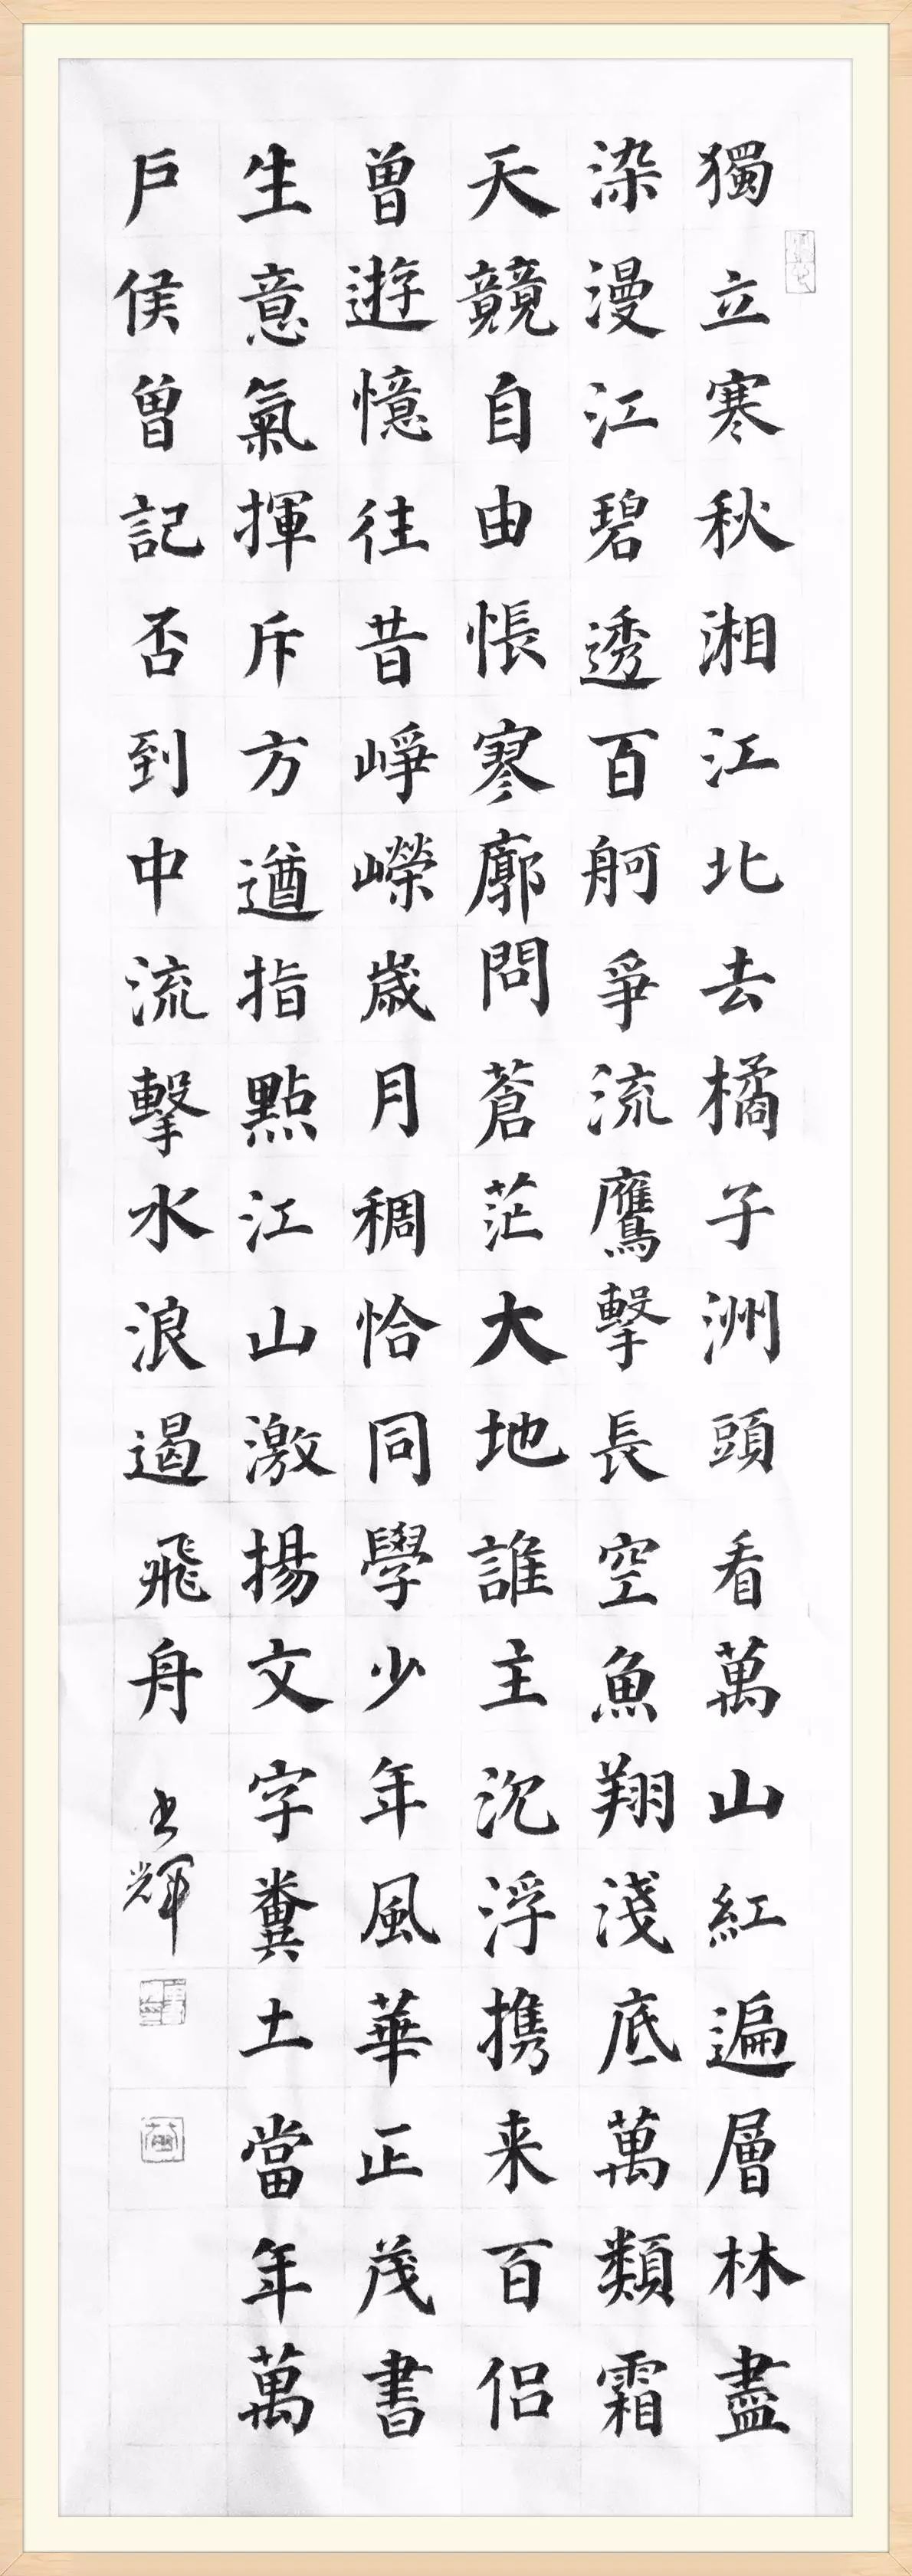 獨立寒秋湘江北去橘子洲頭看萬山紅遍層林盡
染漫江碧透百舸爭流鷹擊長空魚翔淺底萬類霜
天競自由悵寥廓問蒼茫大地誰主沉浮携来百侣
曾遊憶往昔崢嶸歲月稠恰同學少年風華正茂書
生意氣揮斥方遒指點江山激揚文字糞土當年萬
戶侯曾記否到中流擊水浪遏飛舟